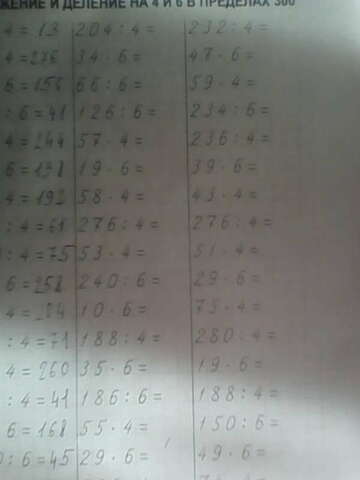 ЖЕНИЕ И ДЕЛЕНИЕ НА 4 И 6 В ПРЕДЕЛАХ 300
4=13 204:4= 232:4=
4=276 34·6= 47·6=
6=156 66:6= 59·4=
:6=41 126:6= 234:6=
4=244 57·4= 236:4=
6=138 19·6= 39·6=
4=192 58·4= 43·4=
:4=61 276:4= 276:4=
:4=75 53·4= 51·4=
6=258 240:6= 29·6=
4=284 10·6= 75·4=
:4=71 188:4= 280:4=
4=260 35·6= 19·6=
:4=41 186:6= 188:4=
6=168 55·4= 150:6=
0:6=45 29·6= 49·6=